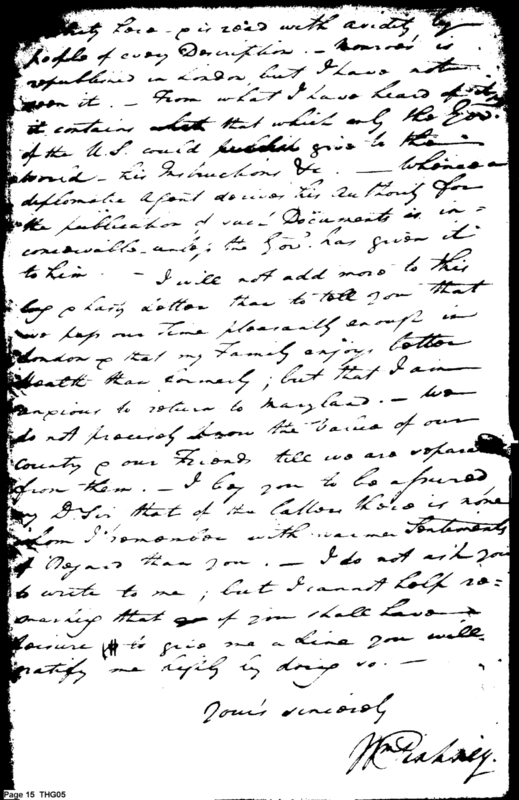 here – & is read with avidity by
people of every Description. – Monroe's is
republished in London but I have not
seen it. – From what I have heard of
it contains that which only the Gov.
of the U.S. could give to the
world – his Instructions &c. – Whence a
diplomatic Agent derives his Authority for
the publication of such Documents is in=
conceivable unless the Gov.t has given it
to him. – I will not add more to this
long & hasty Letter than to tell you that
we pass our Time pleasantly enough in
London & that my Family enjoys better
Health than formerly; but that I am
anxious to return to Maryland. – We
do not precisely know the Value of our
Country & our Friends till we are separa
from them. – I beg you to be assured
my Dr Sir that of the latter there is none
whom I remember with warmer Sentiments
of Regard than you. – I do not ask you
to write to me; but I cannot help re=
marking that if you shall have
leisure to give me a Line you will
gratify me highly by doing so. –
Yours sincerely
Wm Pinkney.
Page 15 THG05